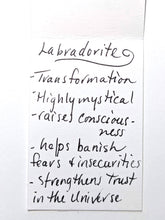 Labradorite
-Transformation
-Highly mystical
-raises conscious-
ness
-helps banish
fears & insecurities
-strengthens trust
in the Universe